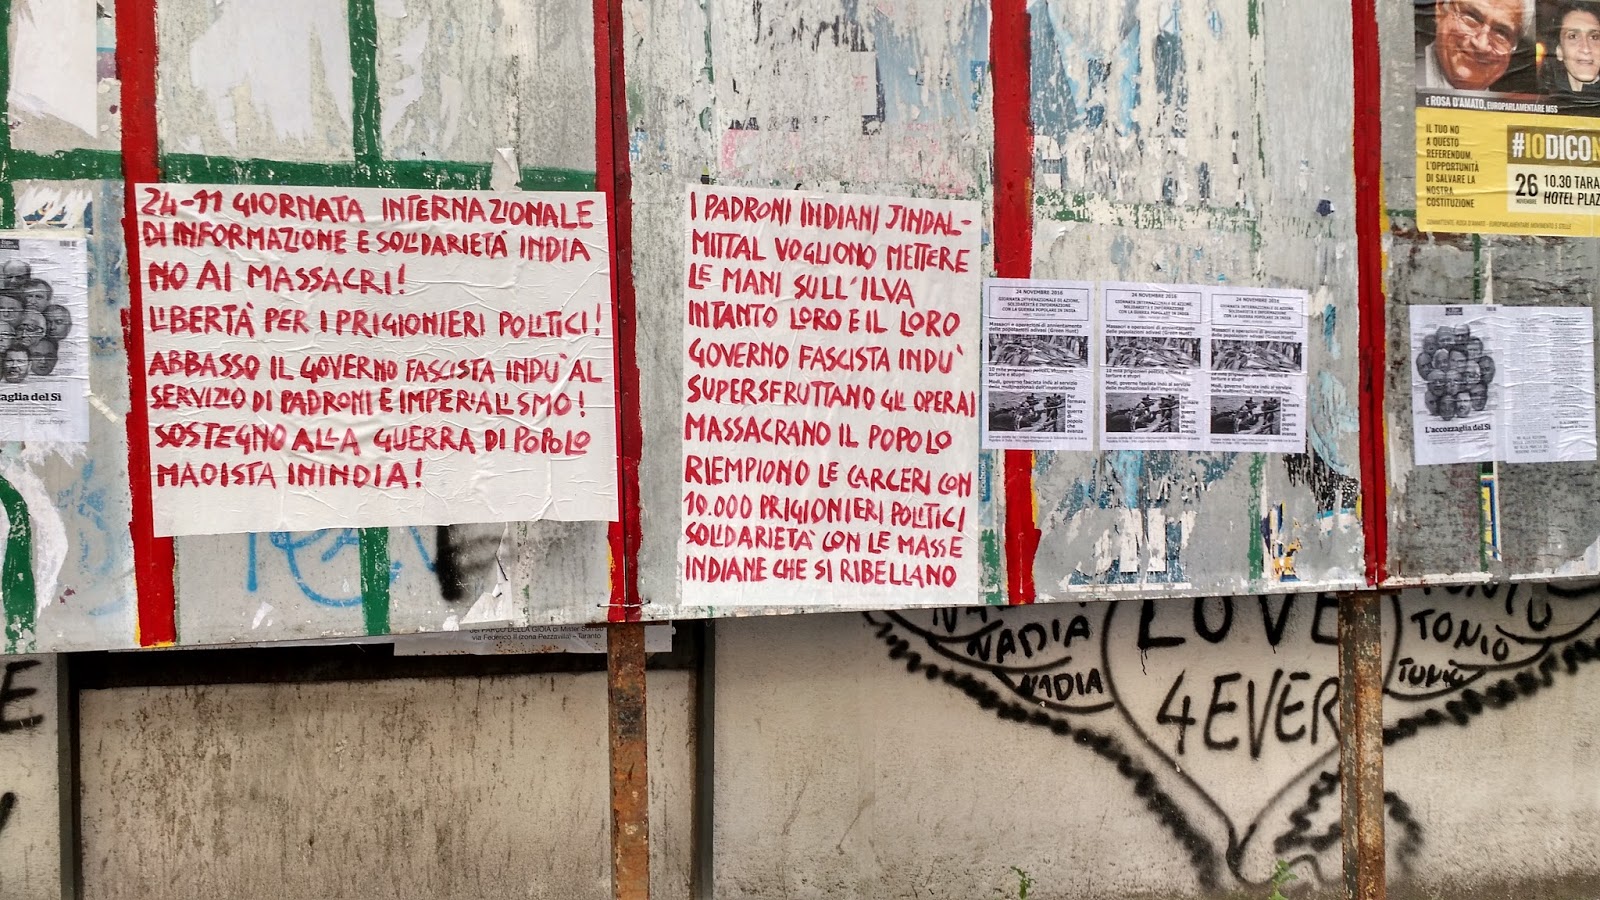 24-11 GIORNATA INTERNAZIONALE
DI INFORMAZIONE E SOLIDARIETÀ INDIA
NO AI MASSACRI!
LIBERTÀ PER I PRIGIONIERI POLITICI!
ABBASSO IL GOVERNO FASCISTA INDÙ AL
SERVIZIO DI PADRONI E IMPERIALISMO!
SOSTEGNO ALLA GUERRA DI POPOLO
MAOISTA IN INDIA!
I PADRONI INDIANI JINDAL-
MITTAL VOGLIONO METTERE
LE MANI SULL'ILVA
INTANTO LORO E IL LORO
GOVERNO FASCISTA INDÙ
SUPERSFRUTTANO GLI OPERAI
MASSACRANO IL POPOLO
RIEMPIONO LE CARCERI CON
10.000 PRIGIONIERI POLITICI
SOLIDARIETÀ CON LE MASSE
INDIANE CHE SI RIBELLANO
24 NOVEMBRE 2016
GIORNATA INTERNAZIONALE DI AZIONE,
SOLIDARIETÀ E INFORMAZIONE
CON LA GUERRA POPOLARE IN INDIA
Massacri e operazioni di annientamento
delle popolazioni adivasi (Green Hunt)
10 mila prigionieri politici, vittime di
torture e stupri
Modi, governo fascista indù al servizio
delle multinazionali dell'imperialismo
Per
fermare
la
guerra
di
popolo
che
avanza
24 NOVEMBRE 2016
GIORNATA INTERNAZIONALE DI AZIONE,
SOLIDARIETÀ E INFORMAZIONE
CON LA GUERRA POPOLARE IN INDIA
Massacri e operazioni di annientamento
delle popolazioni adivasi (Green Hunt)
10 mila prigionieri politici, vittime di
torture e stupri
Modi, governo fascista indù al servizio
delle multinazionali dell'imperialismo
Per
fermare
la
guerra
di
popolo
che
avanza
24 NOVEMBRE 2016
GIORNATA INTERNAZIONALE DI AZIONE,
SOLIDARIETÀ E INFORMAZIONE
CON LA GUERRA POPOLARE IN INDIA
Massacri e operazioni di annientamento
delle popolazioni adivasi (Green Hunt)
10 mila prigionieri politici, vittime di
torture e stupri
Modi, governo fascista indù al servizio
delle multinazionali dell'imperialismo
Per
fermare
la
guerra
di
popolo
che
avanza
E ROSA D'AMATO, EUROPARLAMENTARE M5S
IL TUO NO
A QUESTO
REFERENDUM,
L'OPPORTUNITÀ
DI SALVARE LA
NOSTRA
COSTITUZIONE
#IODICO
26 NOVEMBRE
10.30 TARA
HOTEL PLAZ
COMMITTENTE: ROSA D'AMATO - EUROPARLAMENTARE MOVIMENTO 5 STELLE
L'accozzaglia del Sì
zaglia del Sì
del PARCO DELLA GIOIA di Mister
via Federico II (zona Pezzavilla) - Taranto
NADIA
NADIA
LOVE
4EVER
TONIO
TONIO
E